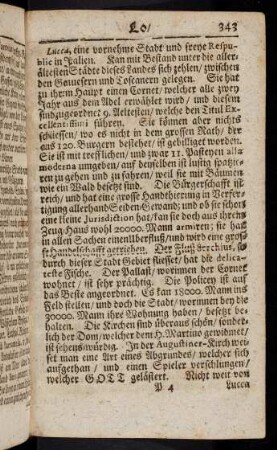 Lo/ 343
Lucca, eine vornehme Stadt und freye Respu-
blic in Italien. Kan mit Bestand unter die aller-
ältesten Städte dieses Landes sich zehlen/ zwischen
den Genuesern und Toscanern gelegen. Sie hat
zu ihrem Haupt einen Cornet/ welcher alle zwey
Jahr aus dem Adel erwählet wird/ und diesem
sind zugeordnet 9. Aeltesten/ welche den Titul Ex-
cellentissimi führen. Sie können aber nichts
schliessen/ wo es nicht in dem grossen Rath/ der
aus 120. Burgern bestehet/ ist gebilliget worden.
Sie ist mit trefflichen/ und zwar 11. Pasteyen alla
moderna umgeben/ auf denselben ist lustig spatzie-
ren zu gehen und zu fahren/ weil sie mit Bäumen
wie ein Wald besetzt sind. Die Bürgerschafft ist
reich/ und hat eine grosse Handthierung in Verfer-
tigung allerhand Seiden Gewand; und ob sie schon
eine kleine Jurisdiction hat/ kan sie doch aus ihrem
Zeug-Haus wohl 20000. Mann armiren; sie hat
in allen Sachen einen Uberfluß/ und wird eine grosse
Handelschafft getrieben. Der Fluß
durch dieser Stadt Gebiet fliesset/ hat die delica-
teste Fische. Der Pallast/ worinnen der Cornet
wohnet/ ist sehr prächtig. Die Policey ist auf
das Beste angeordnet. Es kan 18000. Mann ins
Feld stellen/ und doch die Stadt/ worinnen bey die
30000. Mann ihre Wohnung haben/ besetzt be-
halten. Die Kirchen sind überaus schön/ sonder-
lich der Dom/ welcher dem H. Martino gewidmet/
ist sehens würdig. In der Augustiner-Kirch wei-
set man eine Art eines Abgrundes/ welcher sich
aufgethan/ und einen Spieler verschlungen/
welcher GOTT gelästert. Nicht weit von
P 4 Lucca